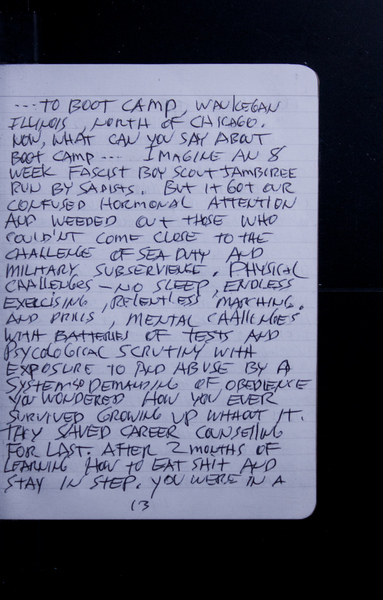 ---TO BOOT CAMP, WAUKEGAN
ILLINOIS, NORTH OF CHICAGO.
NOW, WHAT CAN YOU SAY ABOUT
BOOT CAMP --- IMAGINE AN 8
WEEK FASCIST BOY SCOUT JAMBOREE
RUN BY SADISTS. BUT IT GOT OUR
CONFUSED HORMONAL ATTENTION
AND WEEDED OUT THOSE WHO
COULD'NT COME CLOSE TO THE
CHALLENGE OF SEA DUTY AND
MILITARY SUBSERVIENCE. PHYSICAL
CHALLENGES - NO SLEEP, ENDLESS
EXERCISING, RELENTLESS MARCHING.
AND DRILLS, MENTAL CHALLENGES
WITH BATTERIES OF TESTS AND
PSYCOLOGICAL SCRUTINY WITH
EXPOSURE TO AND ABUSE BY A
SYSTEM SO DEMANDING OF OBEDIENCE
YOU WONDERED HOW YOU EVER
SURVIVED GROWING UP WITHOUT IT.
THEY SAVED CAREER COUNSELLING
FOR LAST. AFTER 2 MONTHS OF
LEARNING HOW TO EAT SHIT AND
STAY IN STEP. YOU WERE IN A
13